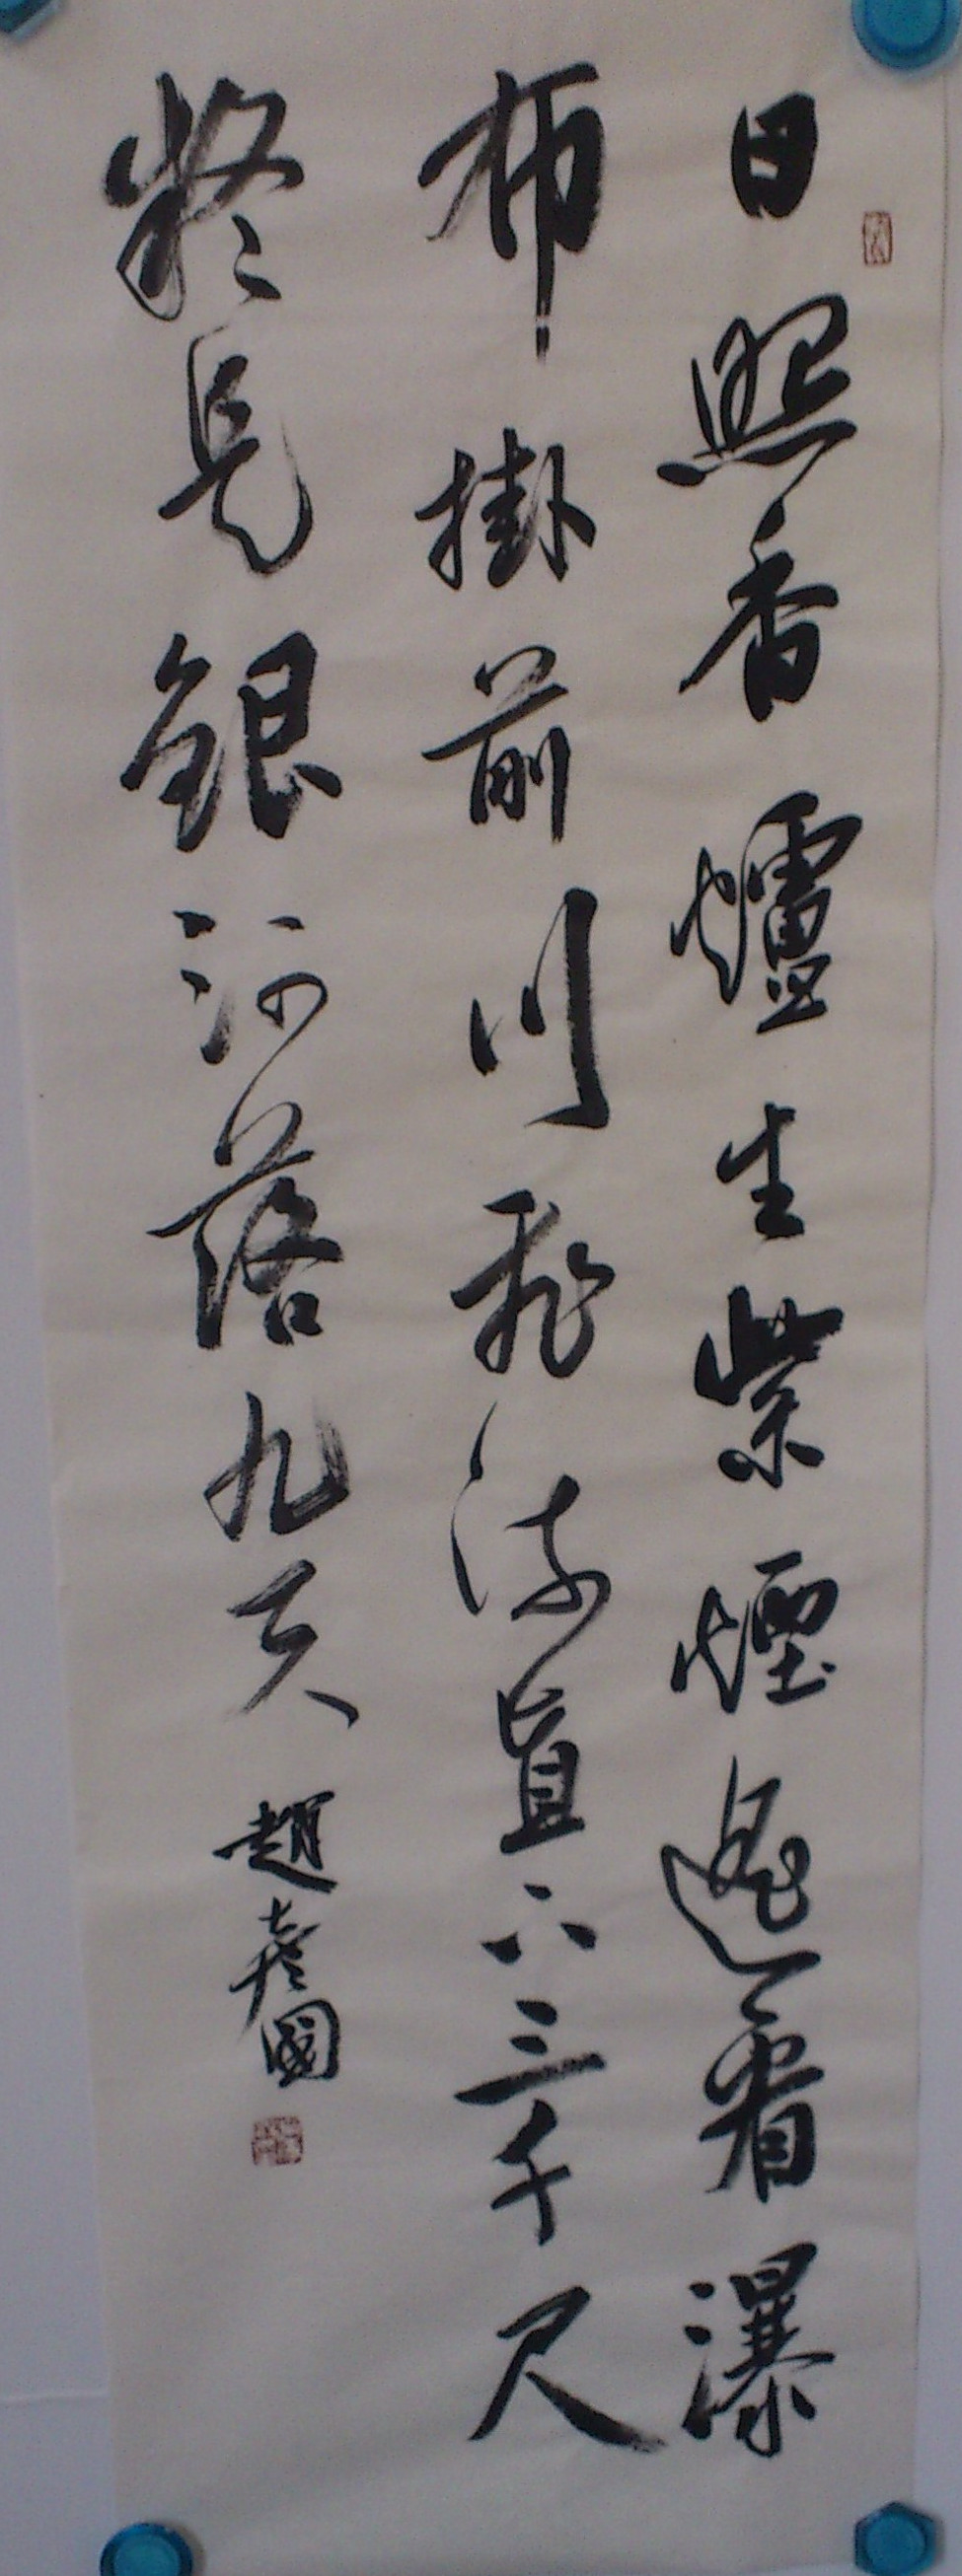 日照香爐生紫煙遙看瀑
布掛前川飛流直下三千尺
疑是銀河落九天
趙彥國